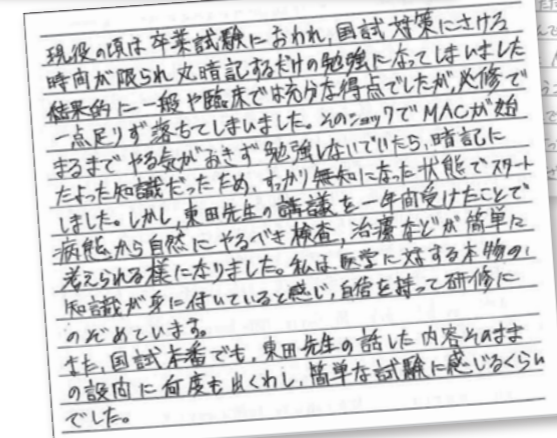 現役の頃は卒業試験におわれ、国試対策にさける
時間が限られ丸暗記するだけの勉強になってしまいました
結果的に一般や臨床では充分な得点でしたが、必修で
一点足りず落ちてしまいました。そのショックでMACが始
まるまでやる気がおきず勉強しないでいたら、暗記に
たよった知識だったため、すっかり無知になった状態でスタート
しました。しかし、東田先生の講議を一年間受けたことで
病態から自然にやるべき検査、治療などが簡単に
考えられる様になりました。私は、医学に対する本物の
知識が身に付いていると感じ、自信を持って研修に
のぞめています。
また、国試本番でも、東田先生の話した内容そのまま
の設問に何度も出くわし、簡単な試験に感じるくらい
でした。